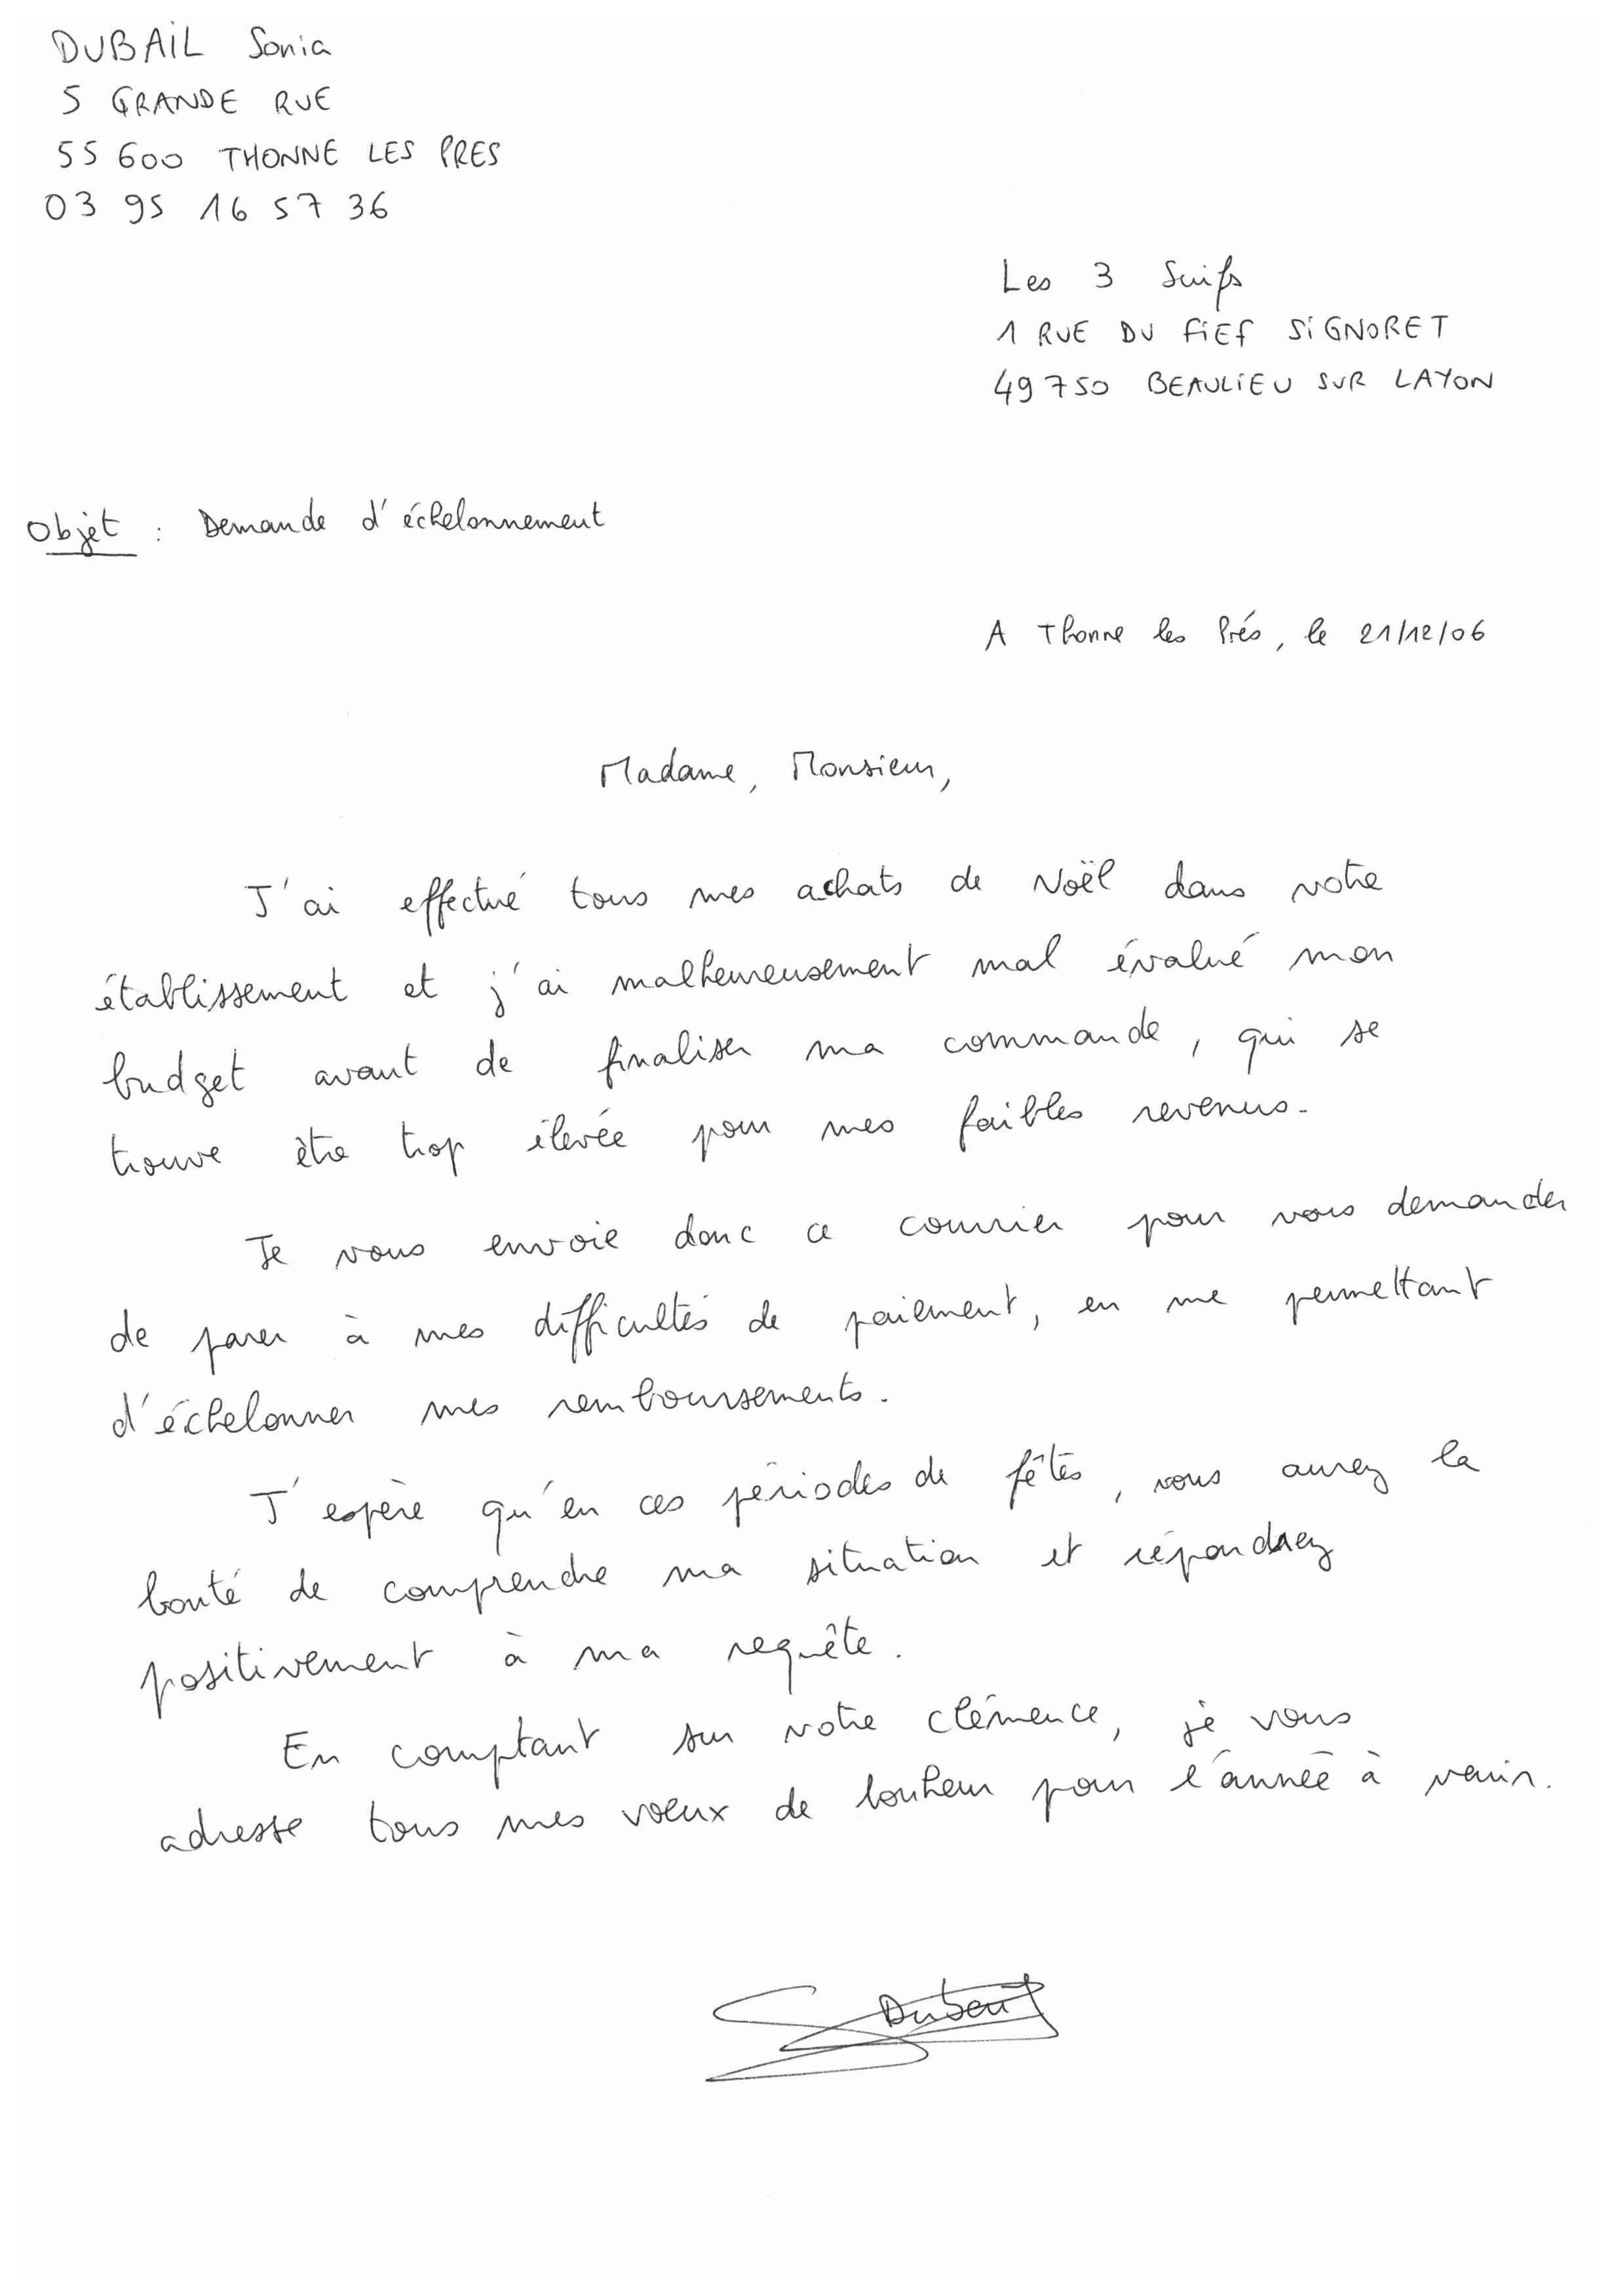 DUBAIL Sonia
5 GRANDE RUE
55 600 THONNE LES PRES
03 95 16 57 36
Les 3 Suifs
1 RUE DU FIEF SIGNORET
49 750 BEAULIEU SUR LAYON
Objet : Demande d'échelonnement
A Thonne les Prés, le 21/12/06
Madame, Monsieur,
J'ai effectué tous mes achats de Noël dans votre
établissement et j'ai malheureusement mal évalué mon
budget avant de finaliser ma commande, qui se
trouve être trop élevée pour mes faibles revenus.
Je vous envoie donc ce courrier pour vous demander
de parer à mes difficultés de paiement, en me permettant
d'échelonner mes remboursements.
J'espère qu'en ces périodes de fêtes, vous aurez la
bonté de comprendre ma situation et répondrez
positivement à ma requête.
En comptant sur votre clémence, je vous
adresse tous mes vœux de bonheur pour l'année à venir.
Dubail